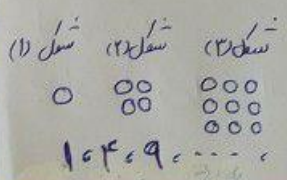 شکل (۱) شکل (۲) شکل (۳)
۱ ، ۴ ، ۹ ، .... ،